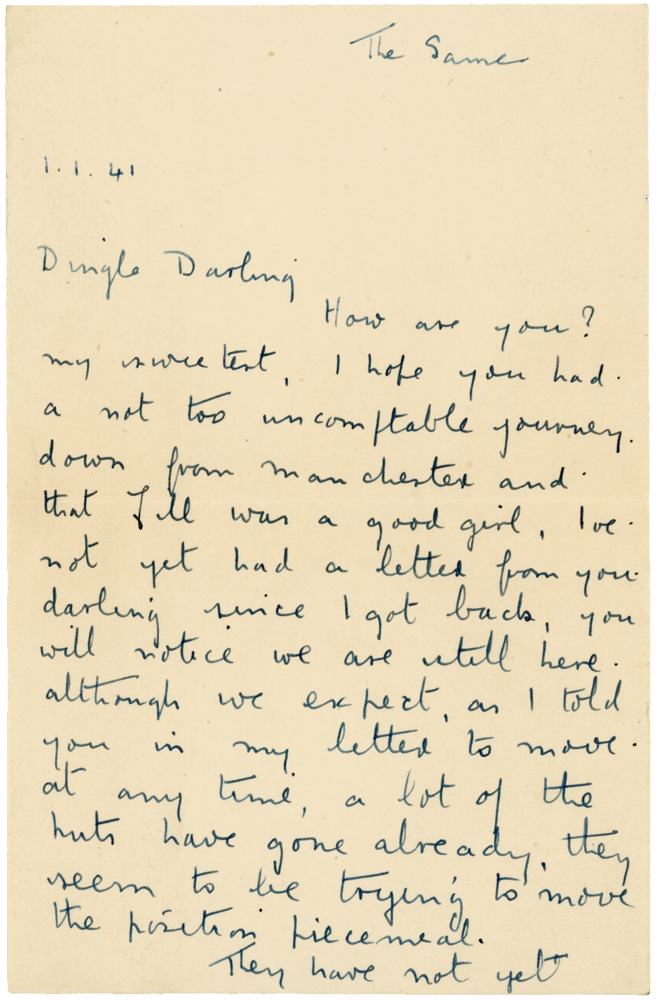 The Same
1.1.41
Dingle Darling
How are you?
my sweetest, I hope you had
a not too uncomftable journey
down from Manchester and
that Jill was a good girl, I've
not yet had a letter from you
darling since I got back, you
will notice we are still here
although we expect, as I told
you in my letter to move
at any time, a lot of the
huts have gone already, they
seem to be trying to move
the position piecemeal.
They have not yet